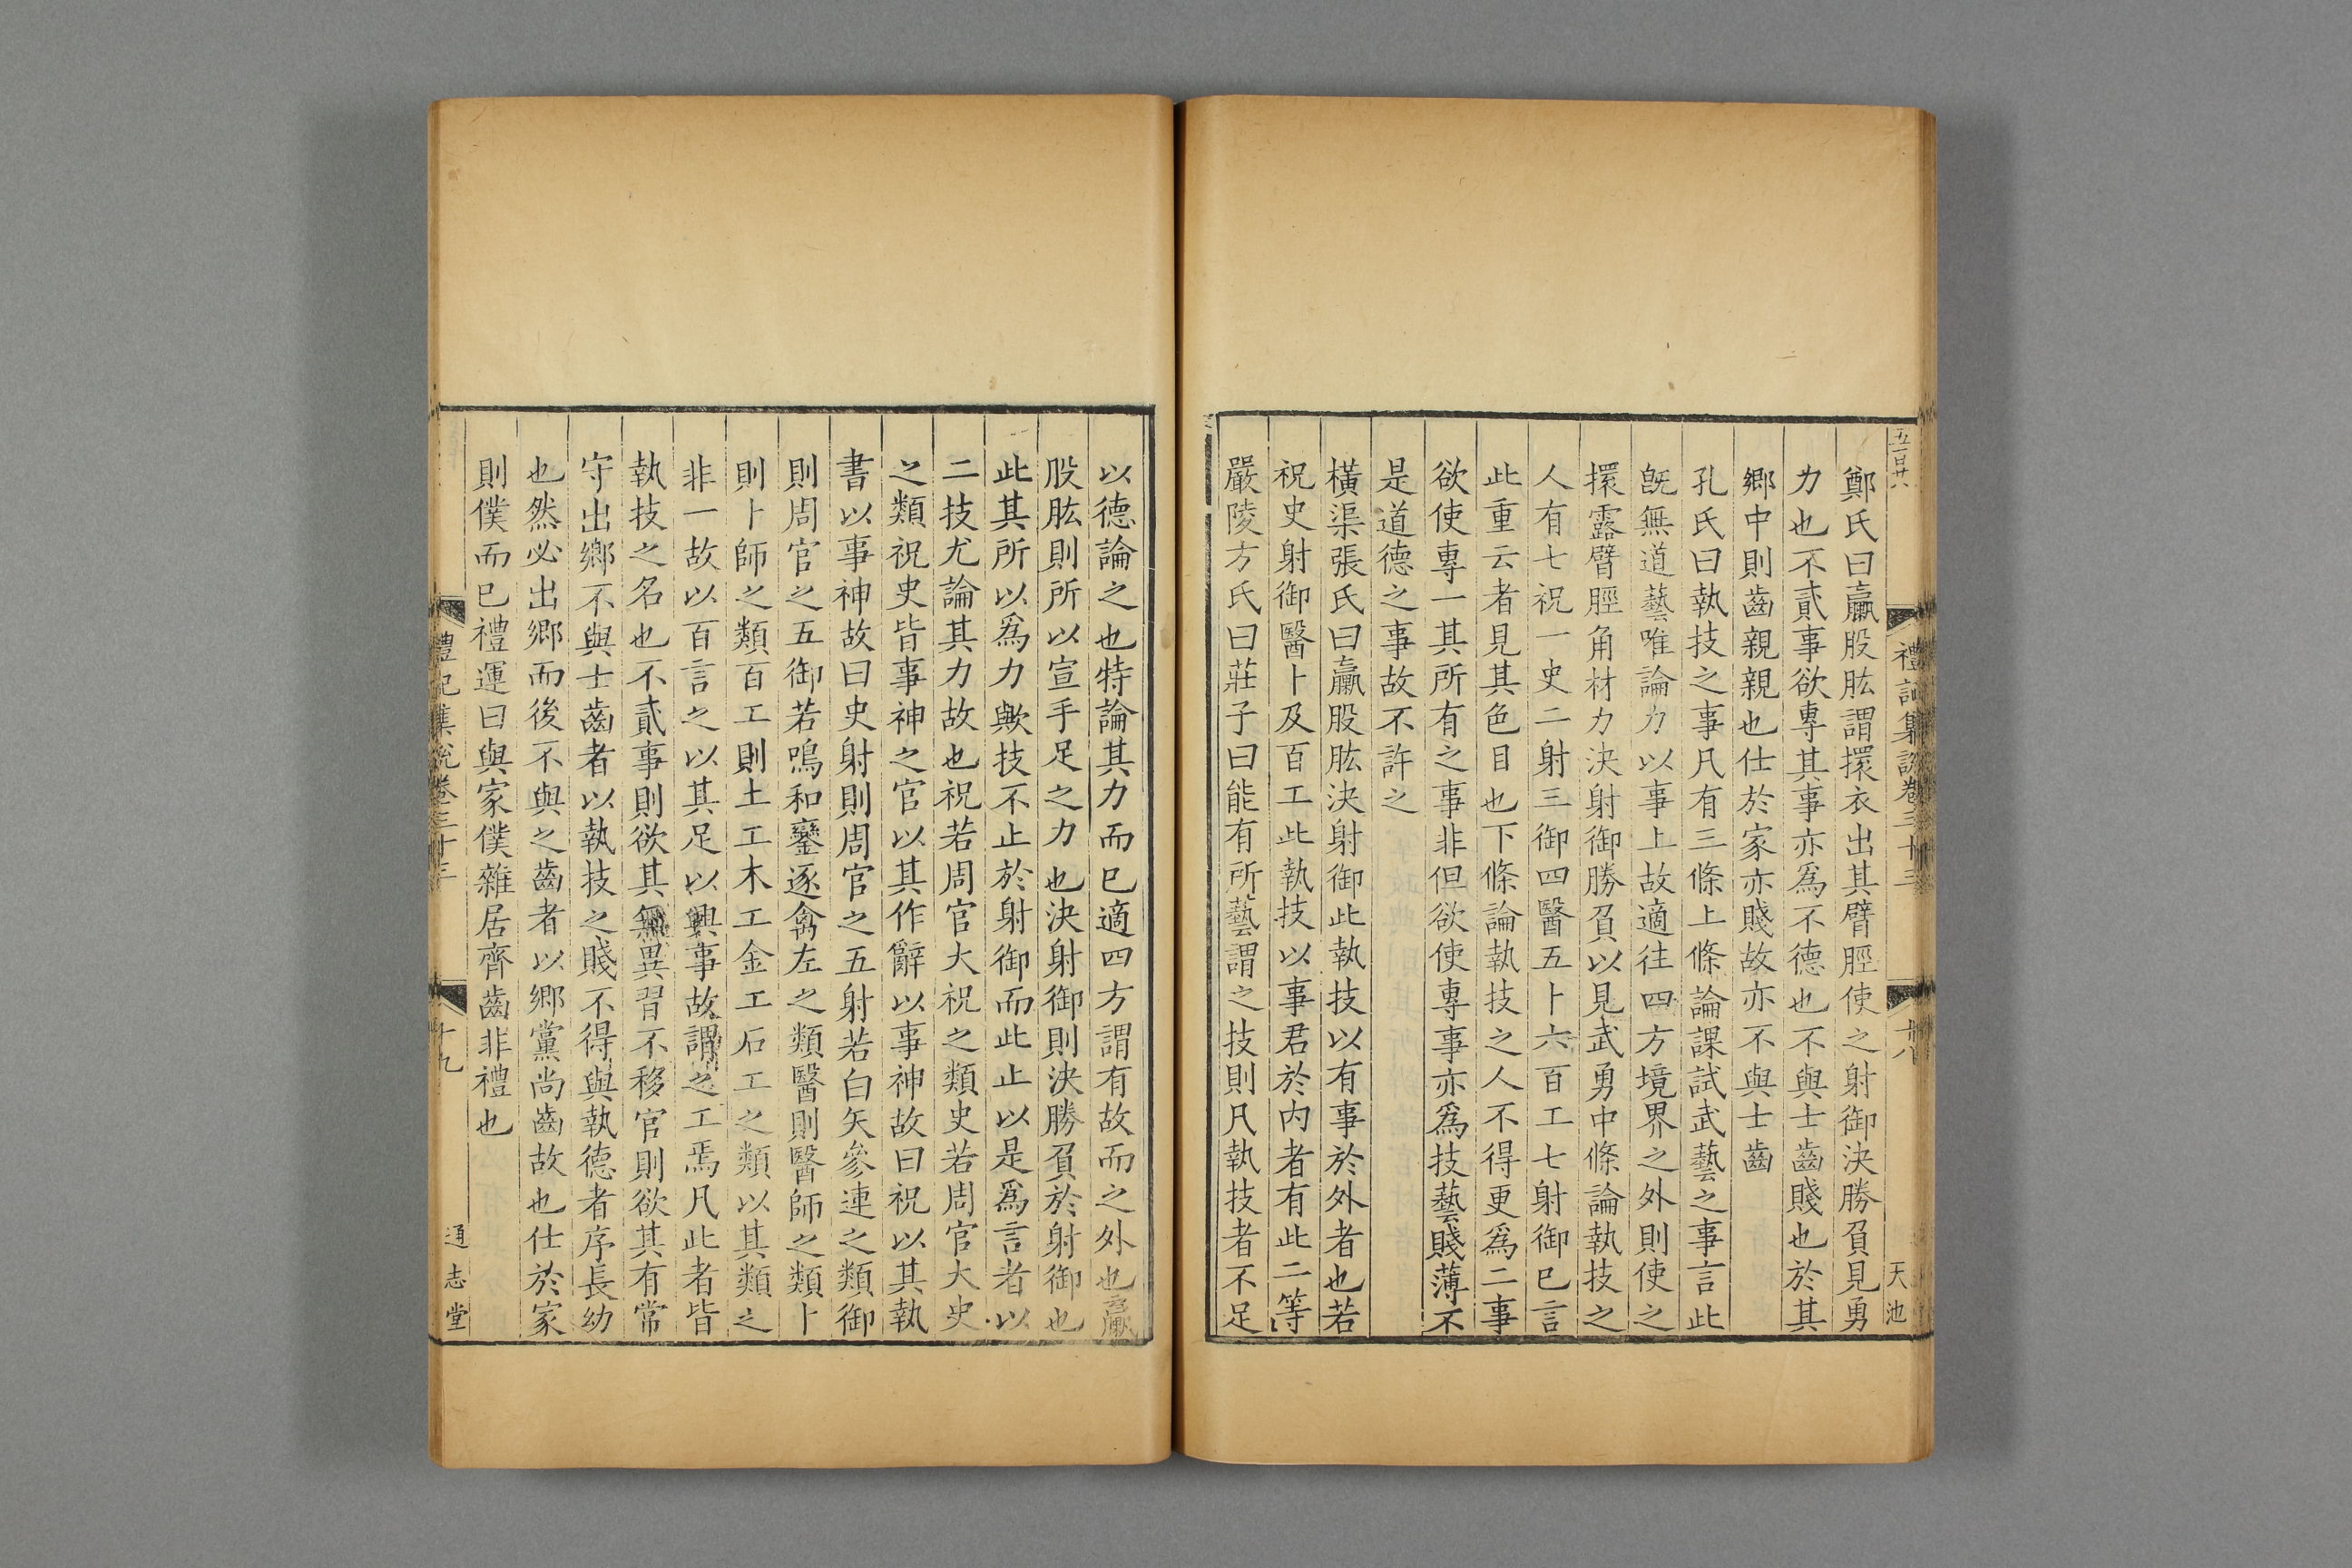 鄭氏曰臝股肱謂擐衣出其臂脛使之射御決勝負見勇
力也不貳事欲專其事亦爲不德也不與士齒賤也於其
鄉中則齒親親也仕於家亦賤故亦不與士齒
孔氏曰執技之事凡有三條上條論課試武藝之事言此
旣無道藝唯論力以事上故適往四方境界之外則使之
擐露臂脛角材力決射御勝負以見武勇中條論執技之
人有七祝一史二射三御四醫五卜六百工七射御已言
此重云者見其色目也下條論執技之人不得更爲二事
欲使專一其所有之事非但欲使專事亦爲技藝賤薄不
是道德之事故不許之
橫渠張氏曰臝股肱決射御此執技以有事於外者也若
祝史射御醫卜及百工此執技以事君於內者有此二等
嚴陵方氏曰莊子曰能有所藝謂之技則凡執技者不足
禮記集說卷三十三
十八
天池
以德論之也特論其力而已適四方謂有故而之外也臝
股肱則所以宣手足之力也決射御則決勝負於射御也
此其所以爲力歟技不止於射御而此止以是爲言者以
二技尤論其力故也祝若周官大祝之類史若周官大史
之類祝史皆事神之官以其作辭以事神故曰祝以其執
書以事神故曰史射則周官之五射若白矢參連之類御
則周官之五御若鳴和鑾逐禽左之類醫則醫師之類卜
則卜師之類百工則土工木工金工石工之類以其類之
非一故以百言之以其足以興事故謂之工焉凡此者皆
執技之名也不貳事則欲其無異習不移官則欲其有常
守出鄉不與士齒者以執技之賤不得與執德者序長幼
也然必出鄉而後不與之齒者以鄉黨尚齒故也仕於家
則僕而已禮運曰與家僕雜居齊齒非禮也
禮記集說卷三十三
十九
通志堂